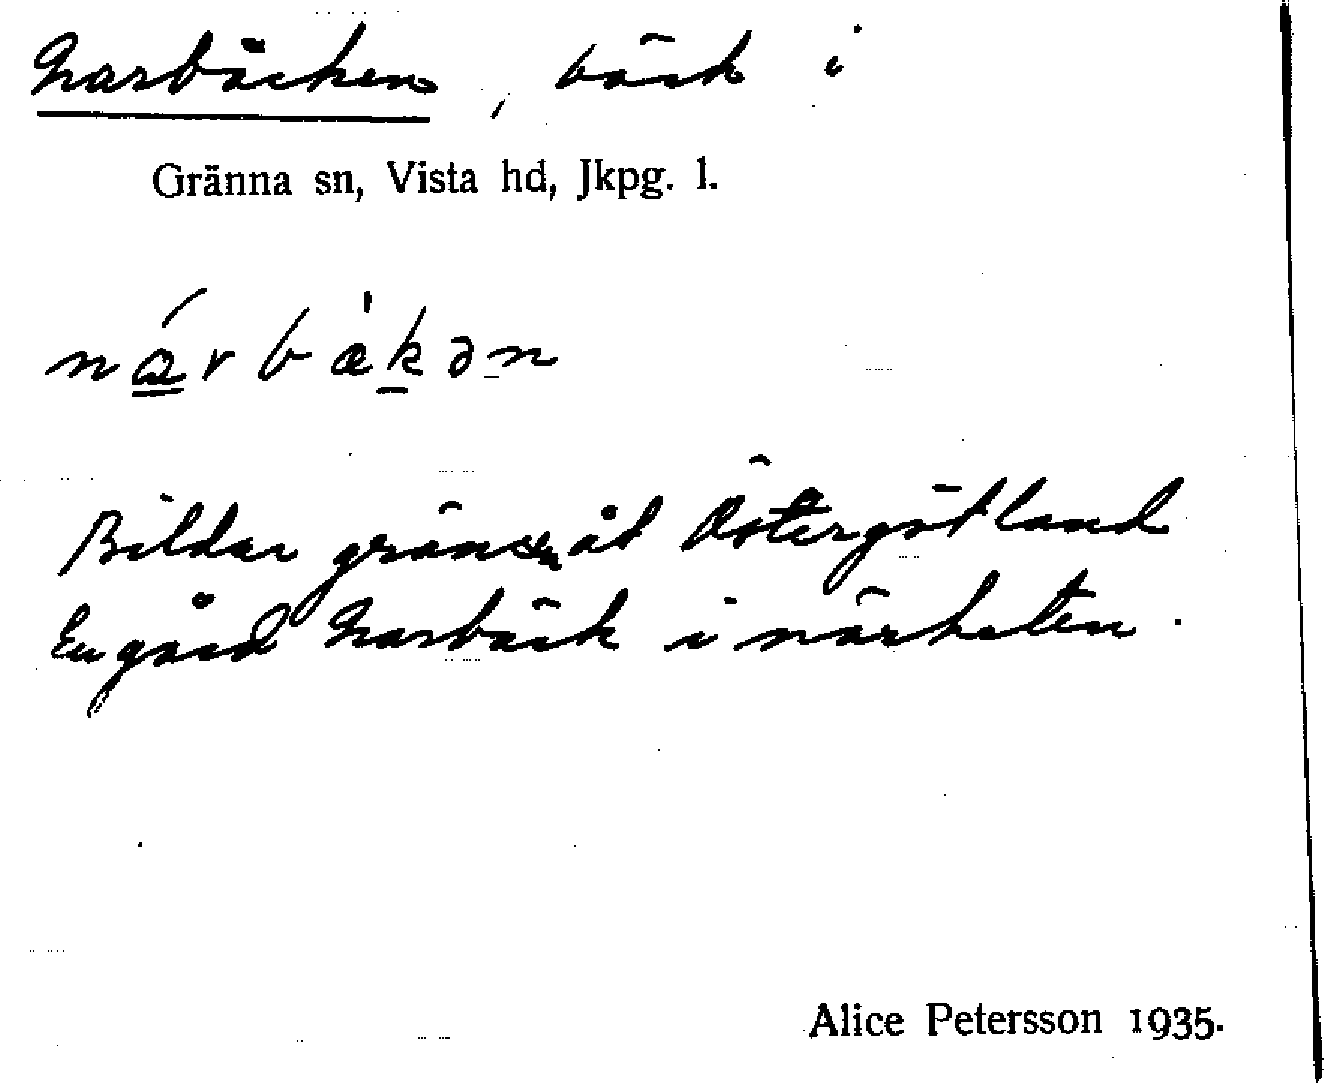 Narbäcken, bäck i
Gränna sn, Vista hd, Jkpg. l.
nárbækən
Bildar gränsen åt Östergötland
En gård Narbäck i närheten.
Alice Petersson 1935.